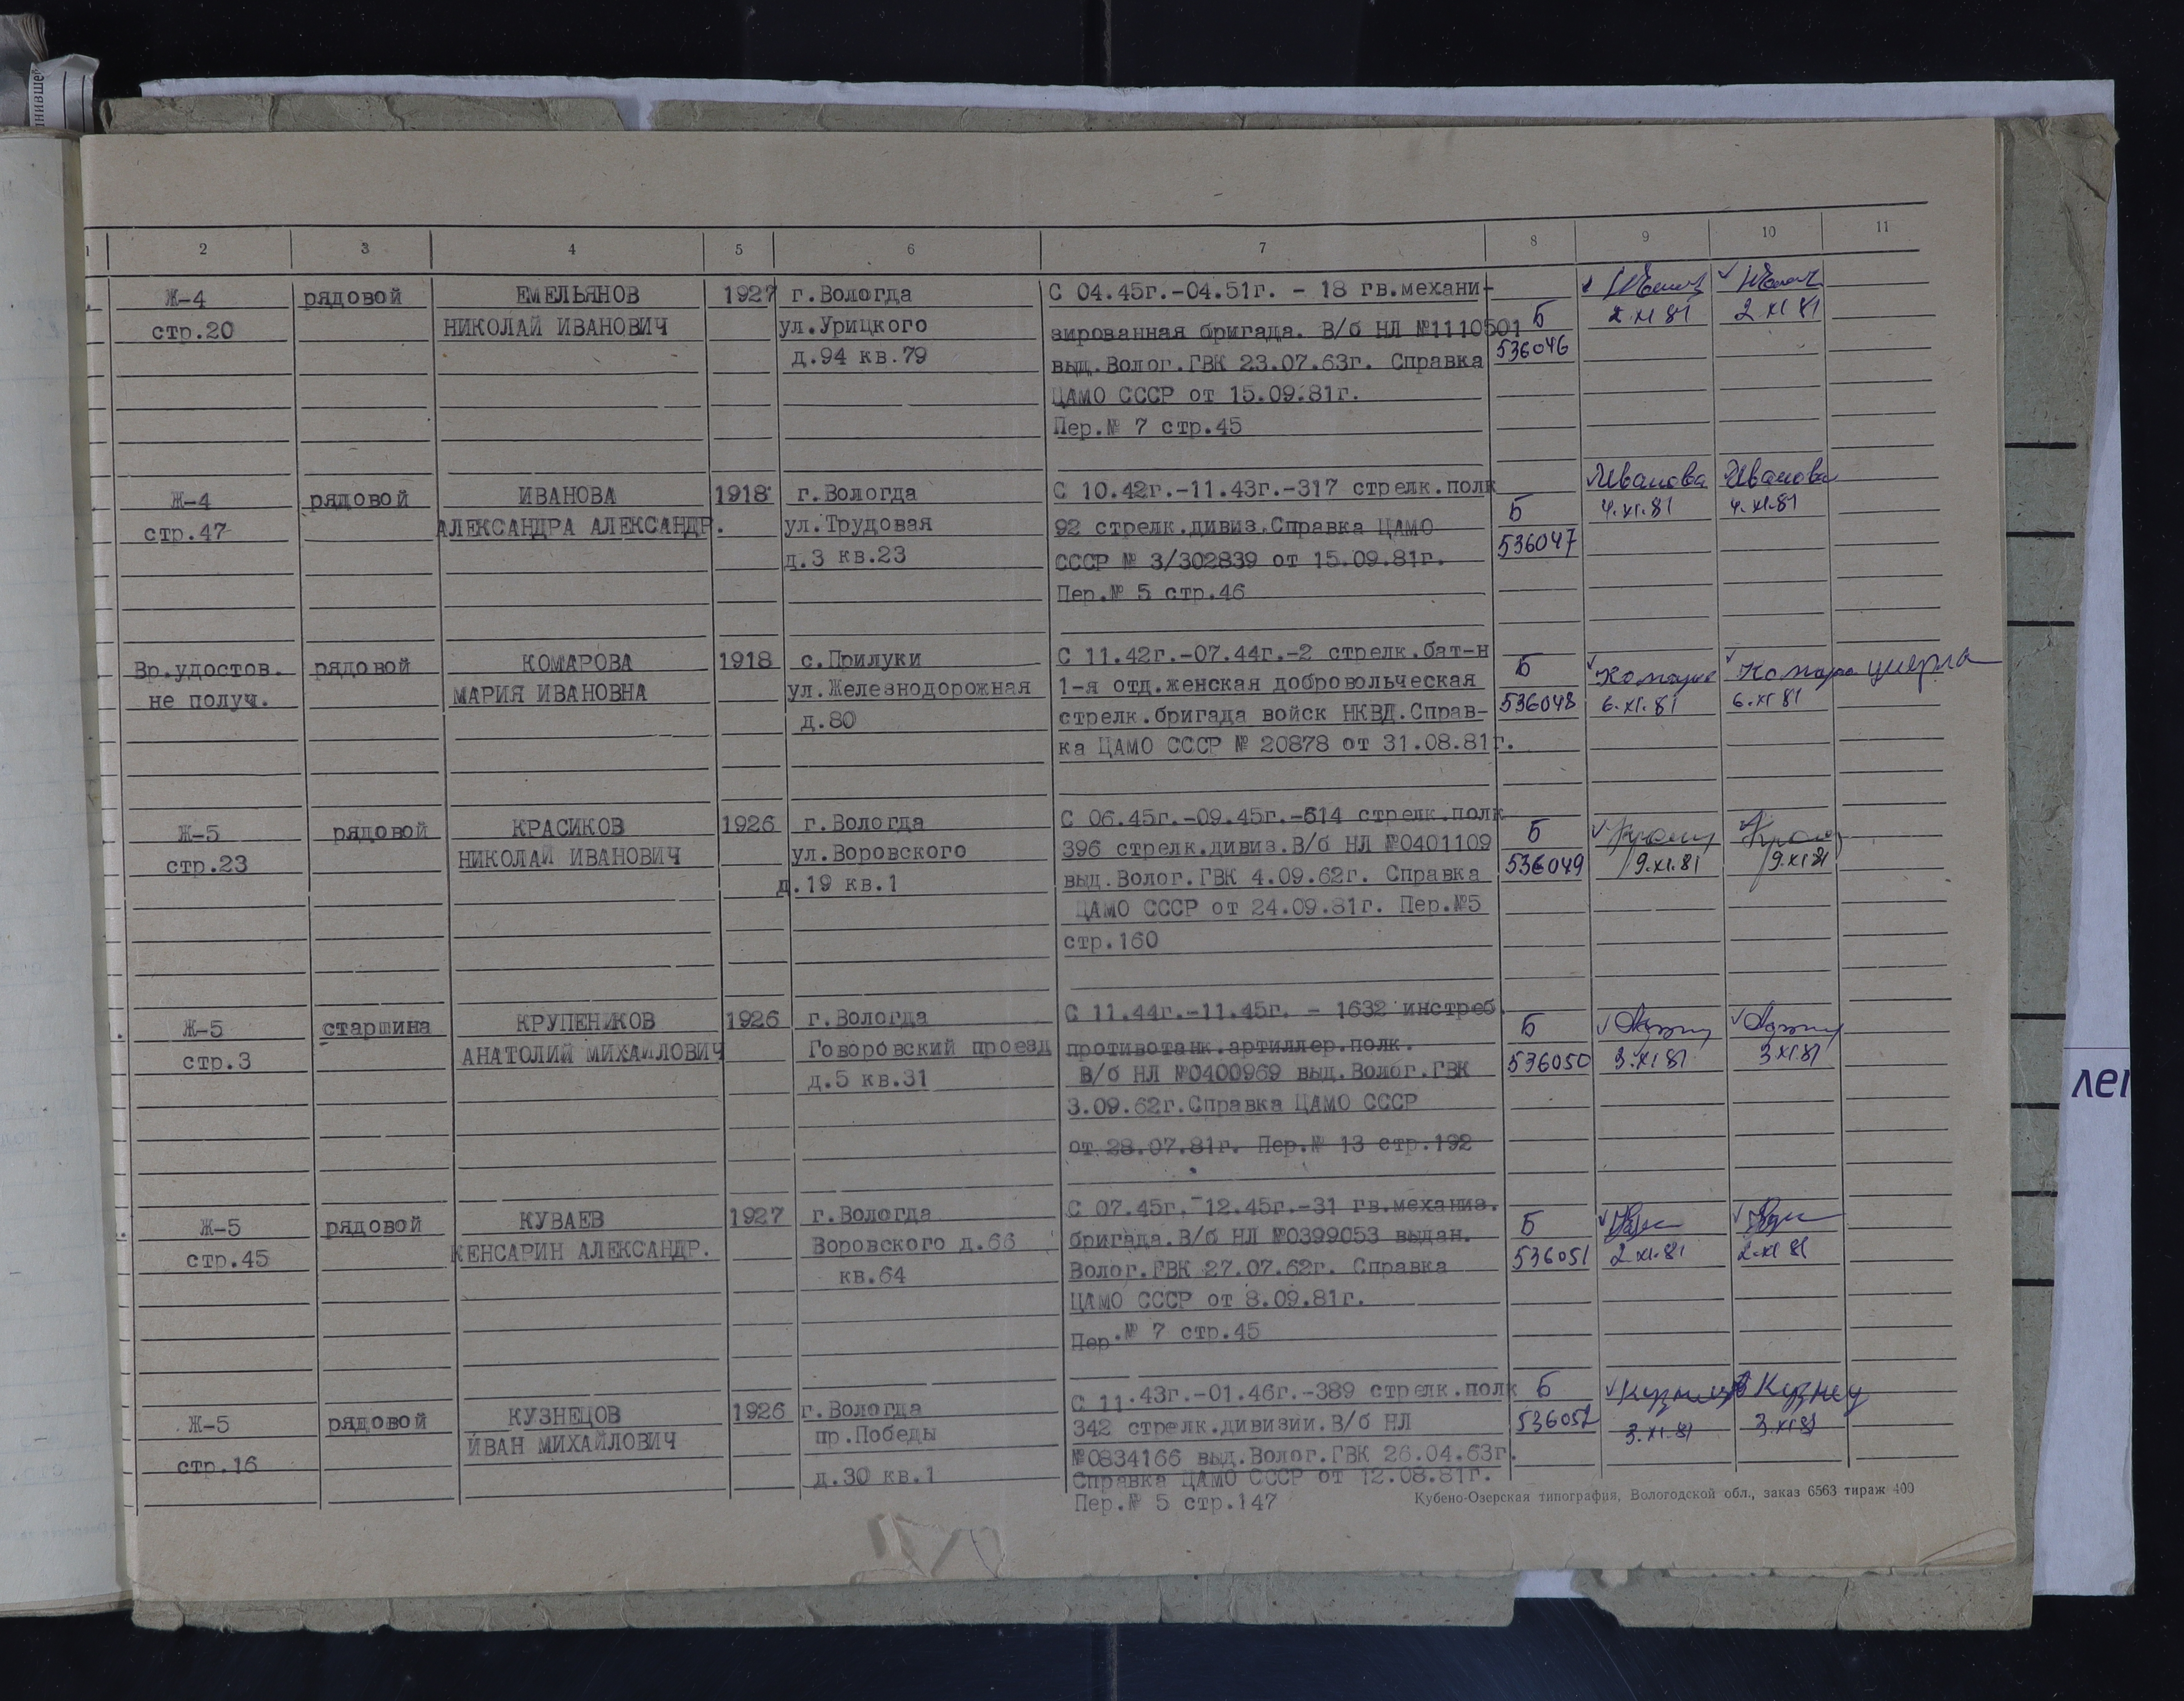 нившей
1 2 3 4 5 6 7 8 9 10 11
Ж-4
стр.20
рядовой
ЕМЕЛЬЯНОВ
НИКОЛАЙ ИВАНОВИЧ
1927
г.Вологда
ул.Урицкого
д.94 кв.79
С 04.45г.-04.51г. - 18 гв.механи-
зированная бригада. В/б НЛ №1110501
выд.Волог.ГВК 23.07.63г. Справка
ЦАМО СССР от 15.09.81г.
Пер.№ 7 стр.45
Б
536046
2.XI 81
2.XI 81
Ж-4
стр.47
рядовой
ИВАНОВА
АЛЕКСАНДРА АЛЕКСАНДР.
1918
г.Вологда
ул.Трудовая
д.3 кв.23
С 10.42г.-11.43г.-317 стрелк.полк
92 стрелк.дивиз.Справка ЦАМО
СССР № 3/302839 от 15.09.81г.
Пер.№ 5 стр.46
Б
536047
Иванова
4.XI.81
Иванова
4.XI.81
Вр.удостов.
не получ.
рядовой
КОМАРОВА
МАРИЯ ИВАНОВНА
1918
с.Прилуки
ул.Железнодорожная
д.80
С 11.42г.-07.44г.-2 стрелк.бат-н
1-я отд.женская добровольческая
стрелк.бригада войск НКВД.Справ-
ка ЦАМО СССР № 20878 от 31.08.81г.
Б
536048
6.XI.81
6.XI 81
умерла
Ж-5
стр.23
рядовой
КРАСИКОВ
НИКОЛАЙ ИВАНОВИЧ
1926
г.Вологда
ул.Воровского
д.19 кв.1
С 06.45г.-09.45г.-614 стрелк.полк
396 стрелк.дивиз.В/б НЛ №0401109
выд.Волог.ГВК 4.09.62г. Справка
ЦАМО СССР от 24.09.81г. Пер.№5
стр.160
Б
536049
9.XI.81
9.XI 81
Ж-5
стр.3
старшина
КРУПЕНИКОВ
АНАТОЛИЙ МИХАЙЛОВИЧ
1926
г.Вологда
Говоровский проезд
д.5 кв.31
С 11.44г.-11.45г. - 1632 инстреб.
противотанк.артиллер.полк.
В/б НЛ №0400969 выд.Волог.ГВК
3.09.62г.Справка ЦАМО СССР
от 28.07.81г. Пер.№ 13 стр.192
Б
536050
3.XI 81
3.XI.81
Ж-5
стр.45
рядовой
КУВАЕВ
КЕНСАРИН АЛЕКСАНДР.
1927
г.Вологда
Воровского д.66
кв.64
С 07.45г.-12.45г.-31 гв.механиз.
бригада.В/б НЛ №0399053 выдан.
Волог.ГВК 27.07.62г. Справка
ЦАМО СССР от 8.09.81г.
Пер.№ 7 стр.45
Б
536051
2.XI.81
2.XI 81
Ж-5
стр.16
рядовой
КУЗНЕЦОВ
ИВАН МИХАЙЛОВИЧ
1926
г.Вологда
пр.Победы
д.30 кв.1
С 11.43г.-01.46г.-389 стрелк.полк
342 стрелк.дивизии.В/б НЛ
№0834166 выд.Волог.ГВК 26.04.63г.
Справка ЦАМО СССР от 12.08.81г.
Пер.№ 5 стр.147
Б
536052
3.XI.81
Кузнец
3.XI 81
Кубено-Озерская типография, Вологодской обл., заказ 6563 тираж 400